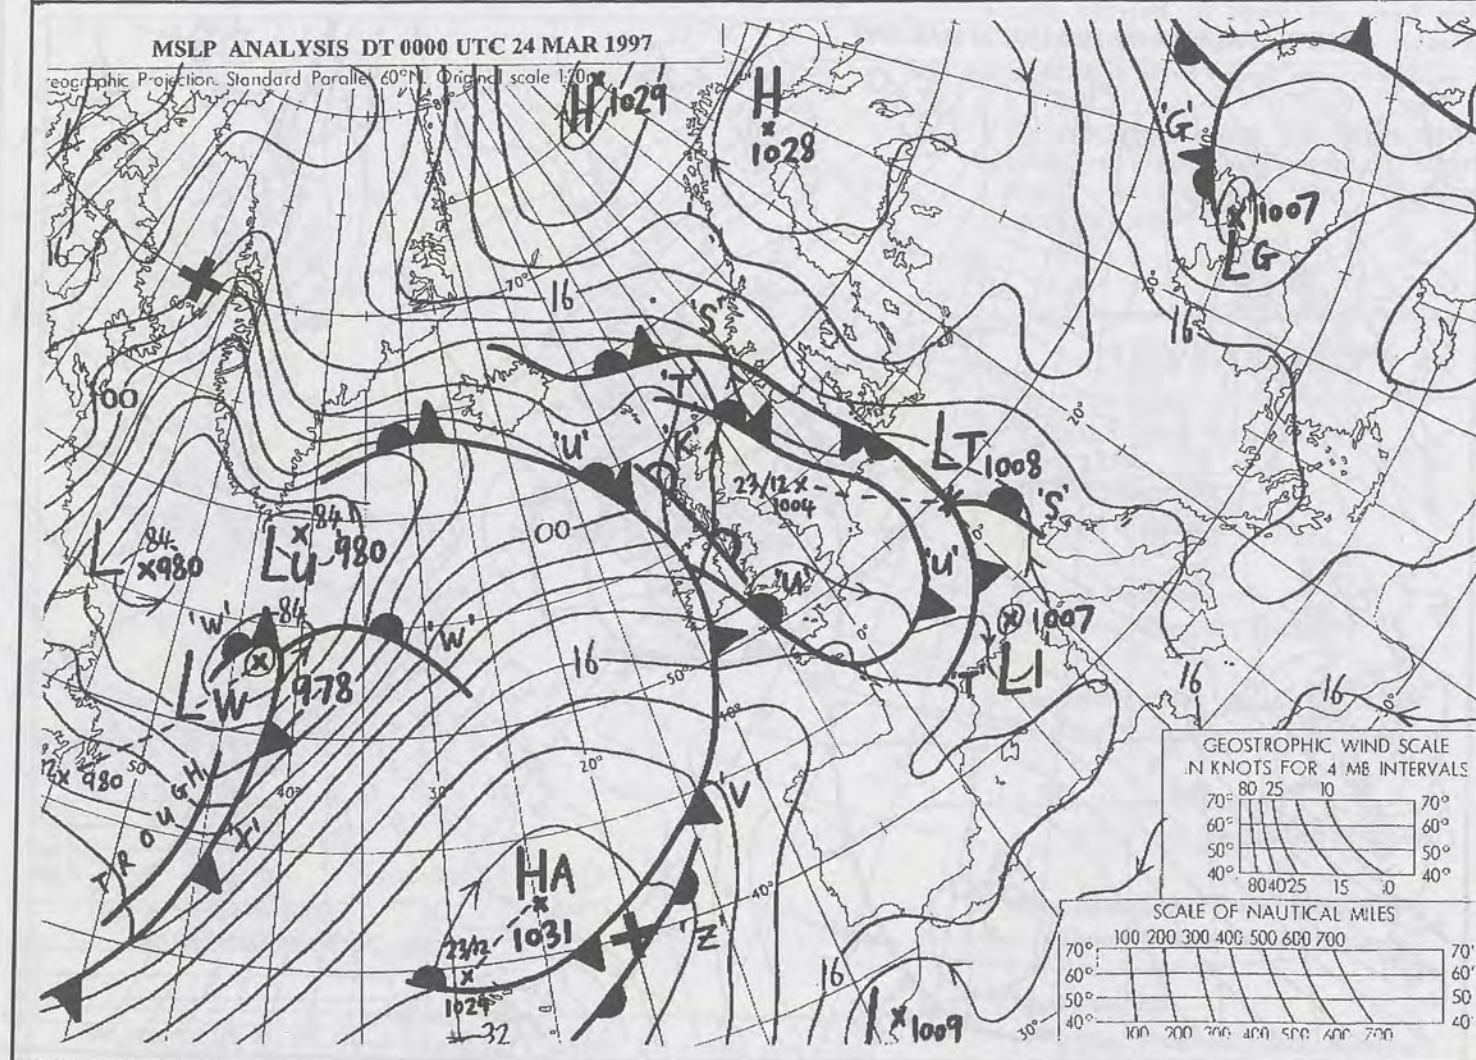 MSLP ANALYSIS DT 0000 UTC 24 MAR 1997
eographic Projection. Standard Parallel 60°N. Original scale 1:20m
H 1029
H
1028
'G'
1007
LG
16
16
'S'
16
70°
00
'T'
'K'
'U'
LT 1008
20°
23/12 x
1004
'S'
0°
00
L 84
x980
84
LU 980
'U'
'U'
0°
1007
LI
'T'
'W'
84
'W'
LW 978
16
50°
40°
16
16
0°
12x 980
50°
TROUGH
40°
30
20°
'V'
'X'
HA
1031
23/12
1024
32
'Z'
40°
16
L x 1009
30°
GEOSTROPHIC WIND SCALE
IN KNOTS FOR 4 MB INTERVALS
80 25 10
70° 70°
60° 60°
50° 50°
40° 40°
80 40 25 15 10
SCALE OF NAUTICAL MILES
100 200 300 400 500 600 700
70° 70°
60° 60°
50° 50°
40° 40°
100 200 300 400 500 600 700